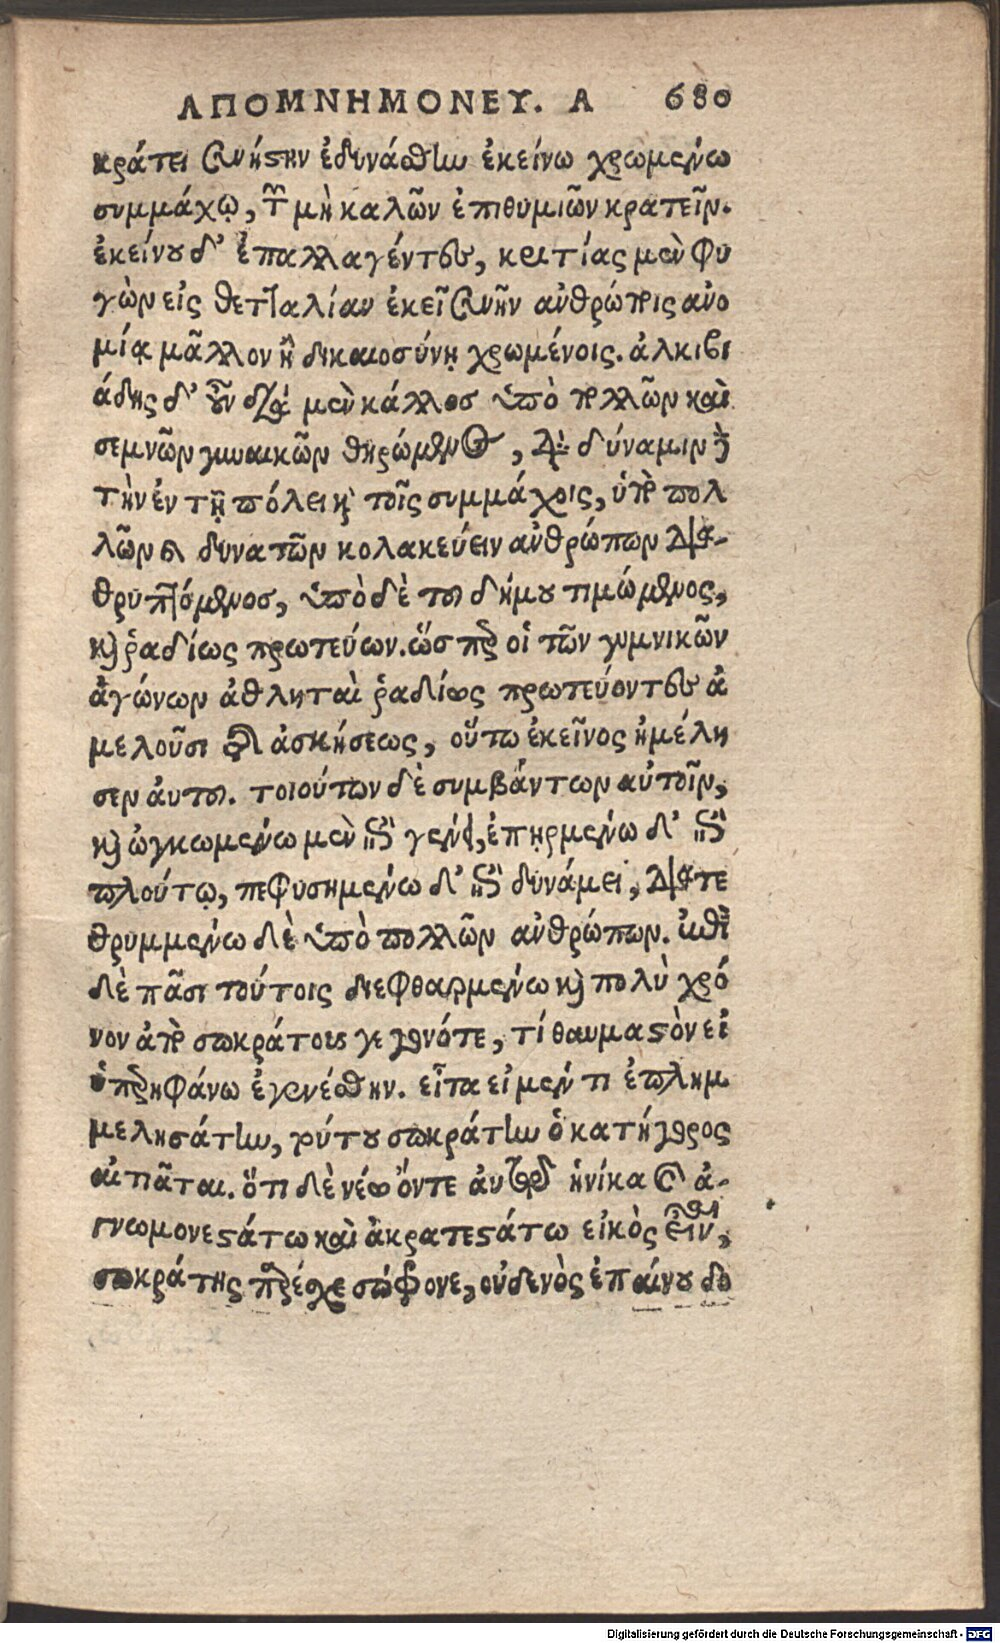 ΑΠΟΜΝΗΜΟΝΕΥ. Α 680
κράτει συνήστην ἐδυνάσθην ἐκείνω χρωμένω
συμμάχῳ, τῶν μὴ καλῶν ἐπιθυμιῶν κρατεῖν.
ἐκείνου δ' ἐπαλλαγέντες, κριτίας μὲν φυ
γὼν εἰς θετταλίαν ἐκεῖ συνῆν ἀνθρώποις ἀνο
μίᾳ μᾶλλον ἢ δικαιοσύνῃ χρωμένοις. ἀλκιβι
άδης δ' οὖν διὰ μὲν κάλλος ὑπὸ πολλῶν καὶ
σεμνῶν γυναικῶν θηρώμενος, διὰ δύναμιν δὲ
τὴν ἐν τῇ πόλει καὶ τοῖς συμμάχοις, ὑπὸ πολ
λῶν καὶ δυνατῶν κολακεύειν ἀνθρώπων δια-
θρυπτόμενος, ὑπὸ δὲ τοῦ δήμου τιμώμενος,
καὶ ῥαδίως πρωτεύων. ὥσπερ οἱ τῶν γυμνικῶν
ἀγώνων ἀθληταὶ ῥαδίως πρωτεύοντες ἀ
μελοῦσι τῆς ἀσκήσεως, οὕτω ἐκεῖνος ἠμέλη
σεν αὑτοῦ. τοιούτων δὲ συμβάντων αὐτοῖν,
καὶ ὠγκωμένω μὲν ἐπὶ γένει, ἐπῃρμένω δ' ἐπὶ
πλούτῳ, πεφυσημένω δ' ἐπὶ δυνάμει, διατε
θρυμμένω δὲ ὑπὸ πολλῶν ἀνθρώπων. ἐπὶ
δὲ πᾶσι τούτοις διεφθαρμένω καὶ πολὺ χρό
νον ἀπὸ σωκράτους γεγονότε, τί θαυμαστὸν εἰ
ὑπερηφάνω ἐγενέσθην. εἶτα εἰ μέν τι ἐπλημ
μελησάτην, τούτου σωκράτην ὁ κατήγορος
αἰτιᾶται. ὅτι δὲ νέω ὄντε αὐτὼ ἡνίκα καὶ ἀ-
γνωμονεστάτω καὶ ἀκρατεστάτω εἰκὸς εἶναι,
σωκράτης παρέσχε σώφρονε, οὐδενὸς ἐπαίνου δο
Digitalisierung gefördert durch die Deutsche Forschungsgemeinschaft - DFG